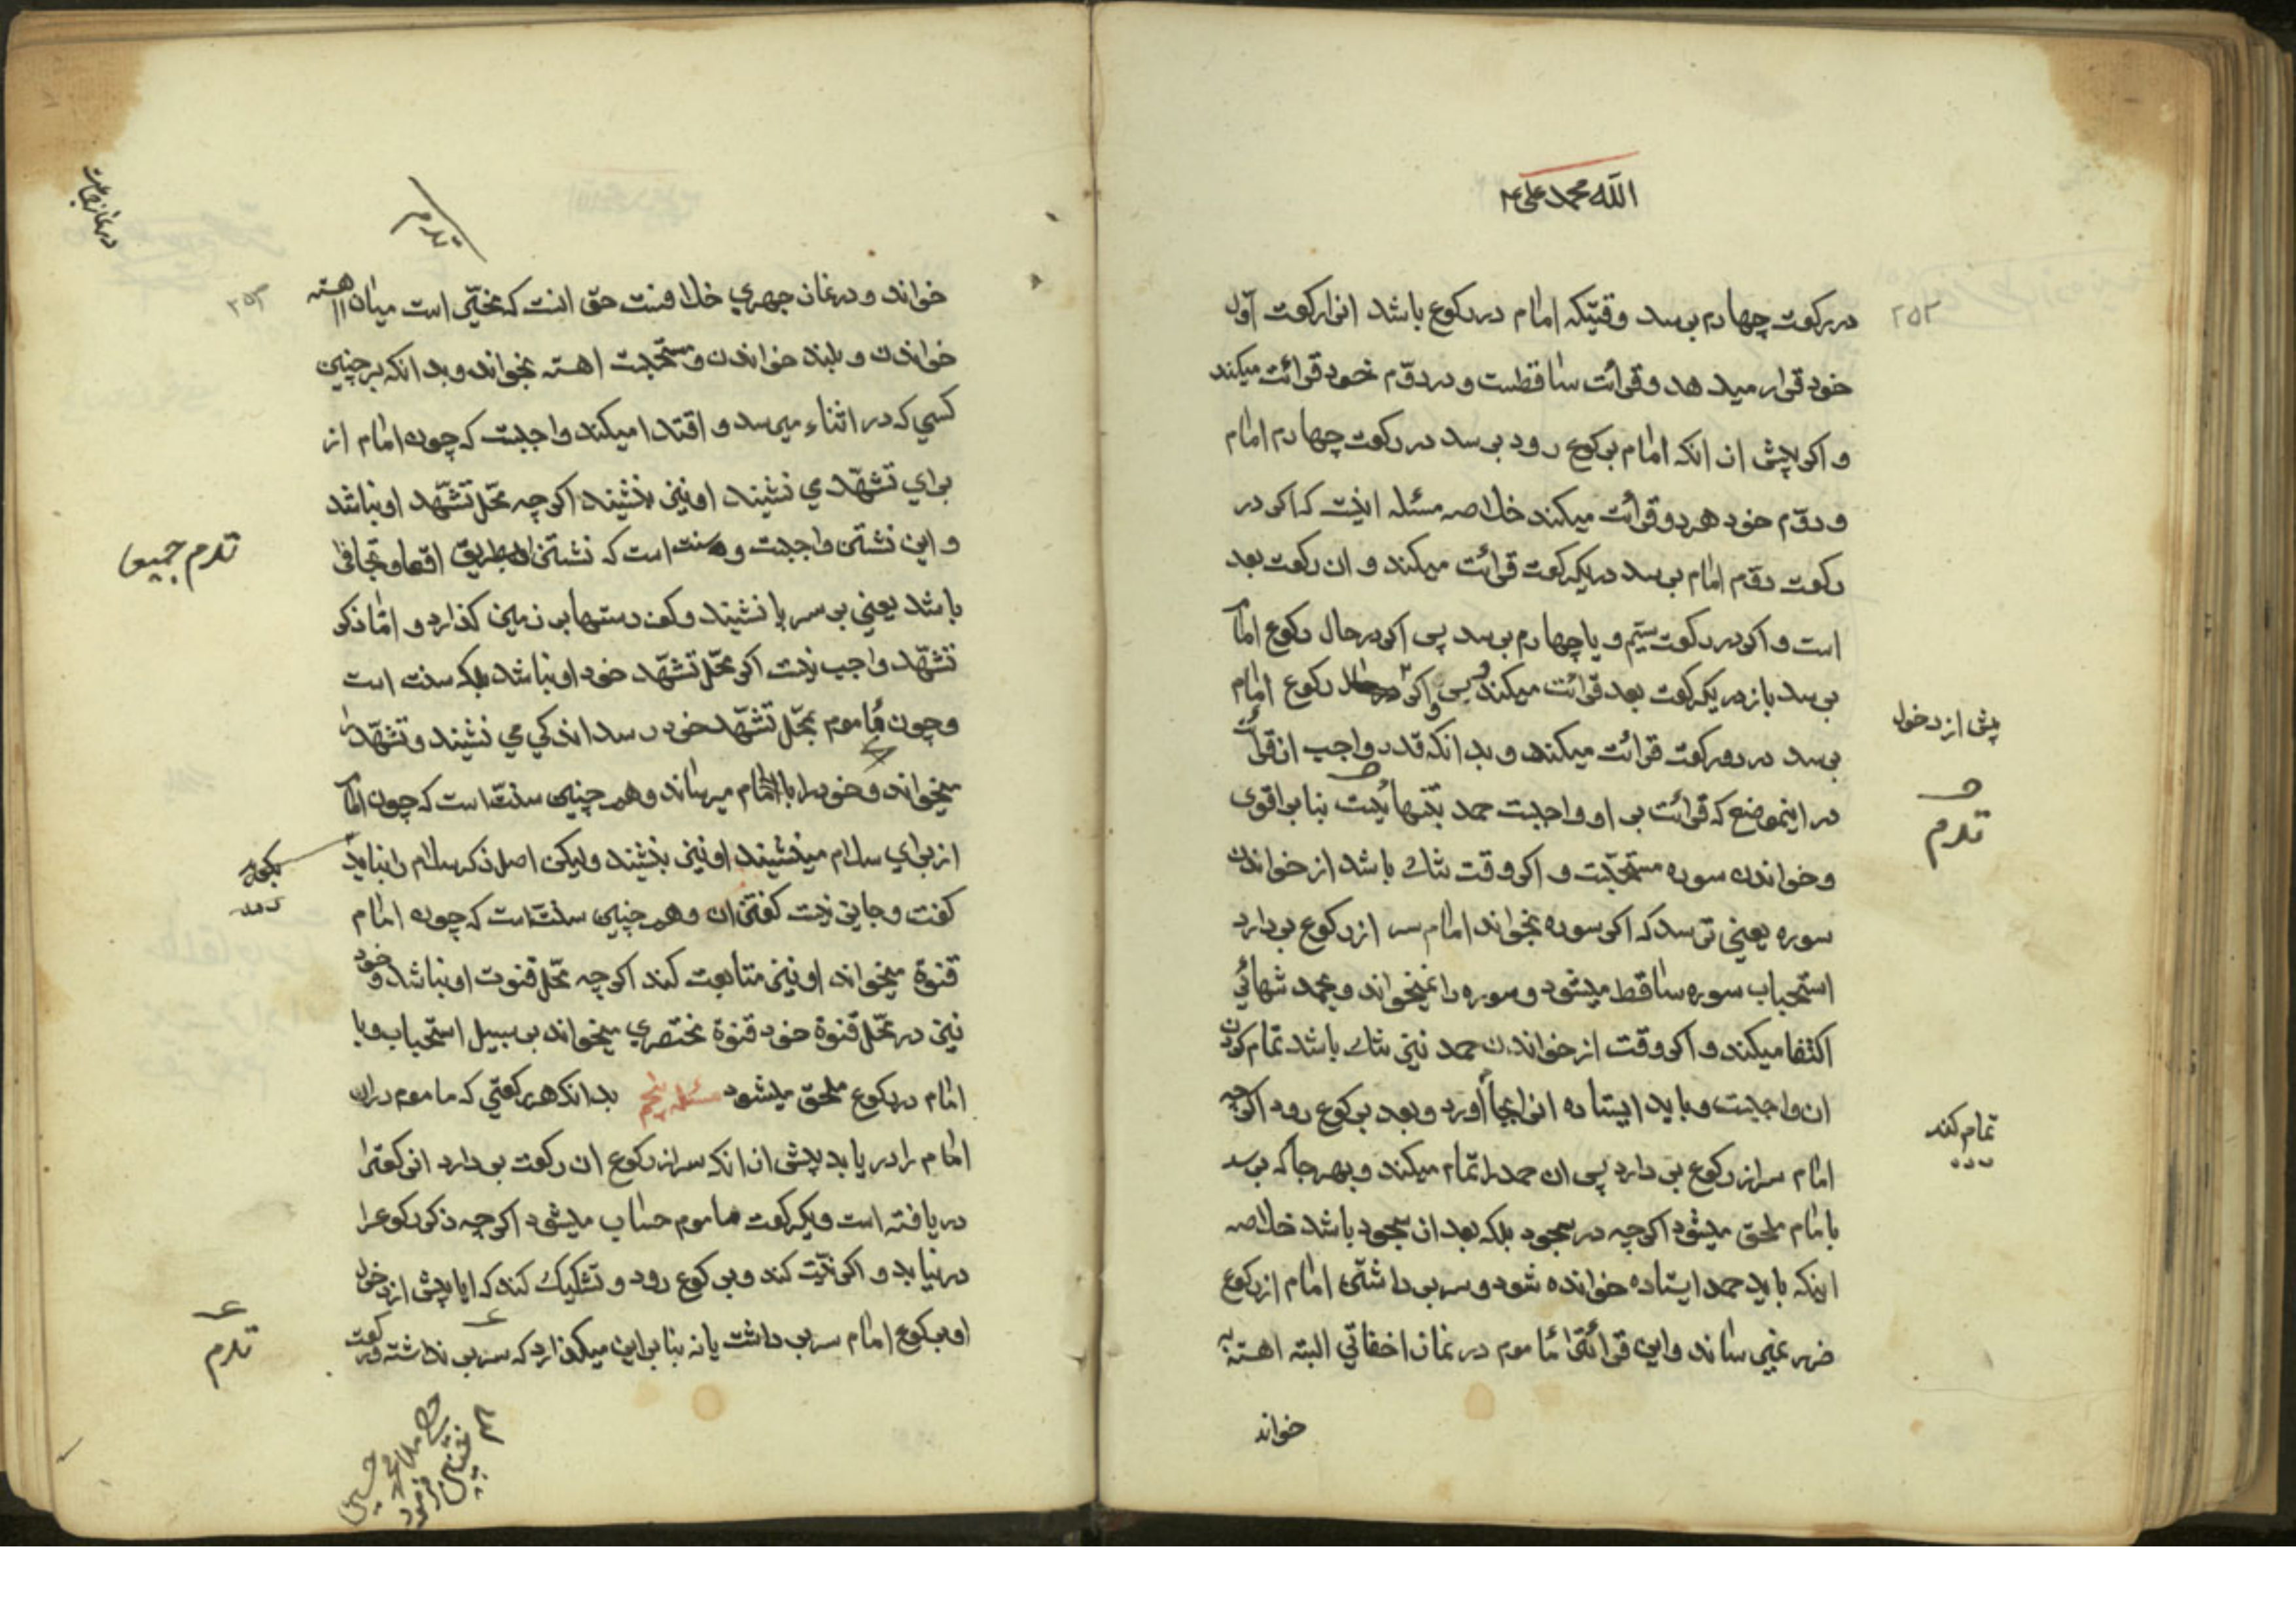 الله محمد علی
۲۵۲
در رکعت چهارم برسد وقتیکه امام در رکوع باشد انرا رکعت اول
خود قرار میدهد و قرائت ساقطست و در دوّم خود قرائت میکند
و اکر پیش از انکه امام برکوع رود برسد در رکعت چهارم امام
و دوّم خود هر دو قرائت میکند خلاصه مسئله اینست که اکر در
رکعت دوّم امام برسد در یکرکعت قرائت میکند و ان رکعت بعد
است و اکر در رکعت سیّم و یا چهارم برسد پس اکر در حال رکوع امام
برسد باز در یکرکعت بعد قرائت میکند و اکر رکوع امام
پیش از دخول
برسد در دو رکعت قرائت میکند و بدانکه قدر واجب از قرائت
در اینموضع که قرائت بر او واجبست حمد بتنهائیست بنا بر اقوی
و خواندن سوره مستحبّست و اکر وقت تنك باشد از خواندن
سوره یعنی ترسد که اکر سوره بخواند امام سر از رکوع بردارد
استحباب سوره ساقط میشود و سوره را نمیخواند و بحمد تنهائی
اکتفا میکند و اکر وقت از خواندن حمد نیز تنك باشد تمام کردن
ان واجبست و باید ایستاده انرا بجا اورد و بعد برکوع رود اکرچه
تمام کند
امام سر از رکوع بردارد پس ان حمد را تمام میکند و بهر جا که برسد
با امام ملحق میشود اکرچه در سجود بلکه بعد از سجود باشد خلاصه
اینکه باید حمد ایستاده خوانده شود و سر برداشتن امام از رکوع
ضرر نمیرساند و این قرائت مأموم در نماز اخفاتی البته اهسته
خواند
در نماز جماعت
۲۵۳
خواند و در نماز جهری خلافست حق انست که مخیّر است میان اهسته
خواندن و بلند خواندن و مستحبّست اهسته بخواند و بدانکه بر چنین
کسی که در اثناء میرسد و اقتدا میکند واجبست که چون امام از
برای تشهّد می نشیند او نیز بنشیند اکرچه محلّ تشهّد او نباشد
و این نشتن واجبست و سنت است که نشتن بطریق اقعا و تجافی
باشد یعنی بر سر پا نشیند و کف دستها بر زمین کذارد و امّا ذکر
تشهّد واجب نیست اکر محلّ تشهّد خود او نباشد بلکه سنت است
و چون مأموم بمحلّ تشهّد خود رسد اندکی می نشیند و تشهّد را
میخواند و خود را با امام میرساند و همچنین سنت است که چون امام
از برای سلام مینشیند او نیز بنشیند و لیکن اصل ذکر سلام را نباید
کفت و جایز نیست کفتن ان و همچنین سنت است که چون امام
قنوة میخواند او نیز متابعت کند اکرچه محلّ قنوت او نباشد و خود
نیز در محلّ قنوة خود قنوة مختصری میخواند بر سبیل استحباب و با
امام در رکوع ملحق میشود مسئله پنجم بدانکه هر رکعتی که ماموم دران
امام را دریابد پیش از انکه سر از رکوع ان رکعت بردارد انرکعترا
دریافته است و یکرکعت ماموم حساب میشود اکرچه ذکر رکوعرا
در نیابد و اکر نیّت کند و برکوع رود و تشکیك کند که ایا پیش از دخول
او برکوع امام سر برداشت یا نه بنا براین میکذارد که سر بر نداشته